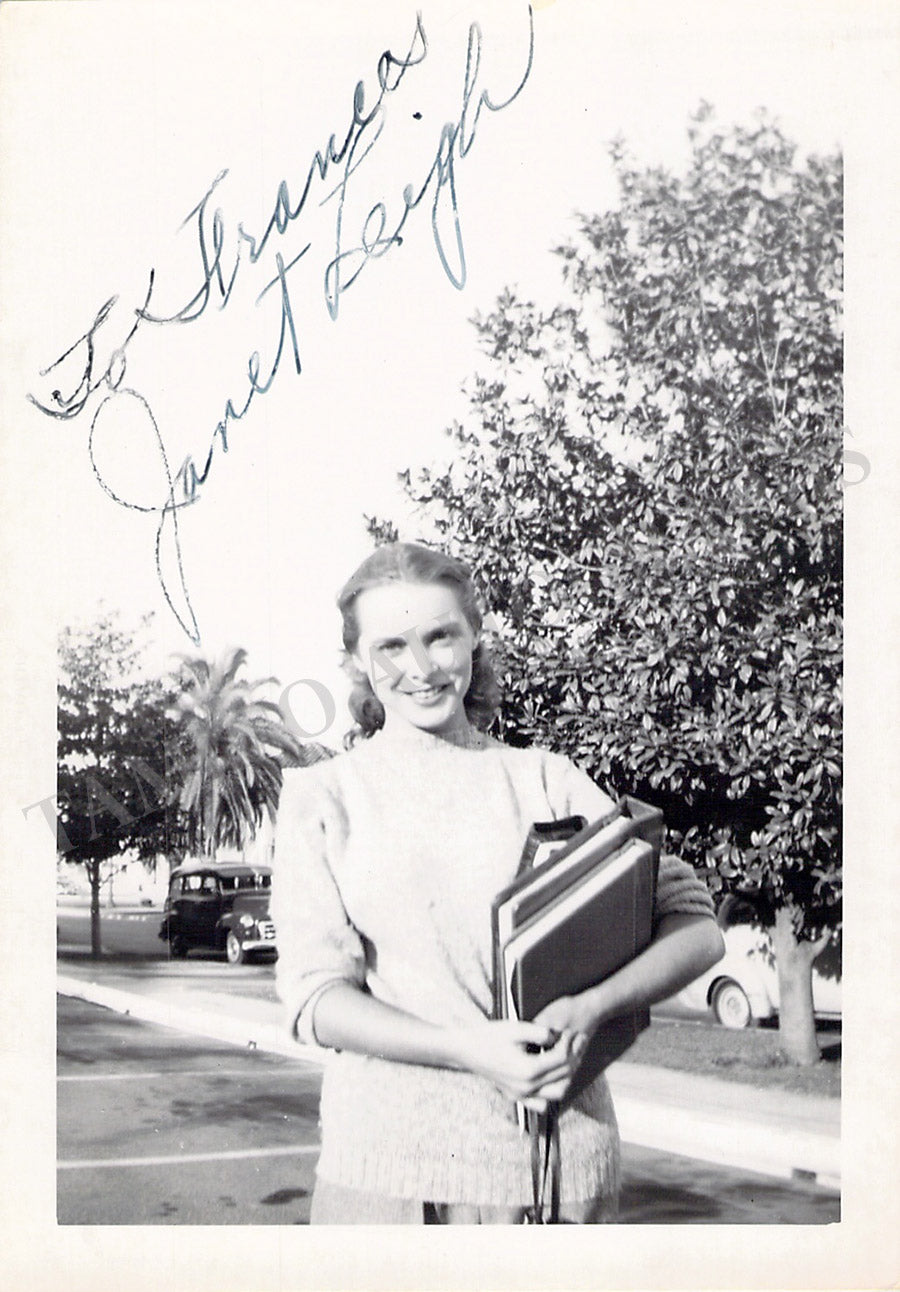 To Frances
Janet Leigh
TAMINO AUTOGRAPHS